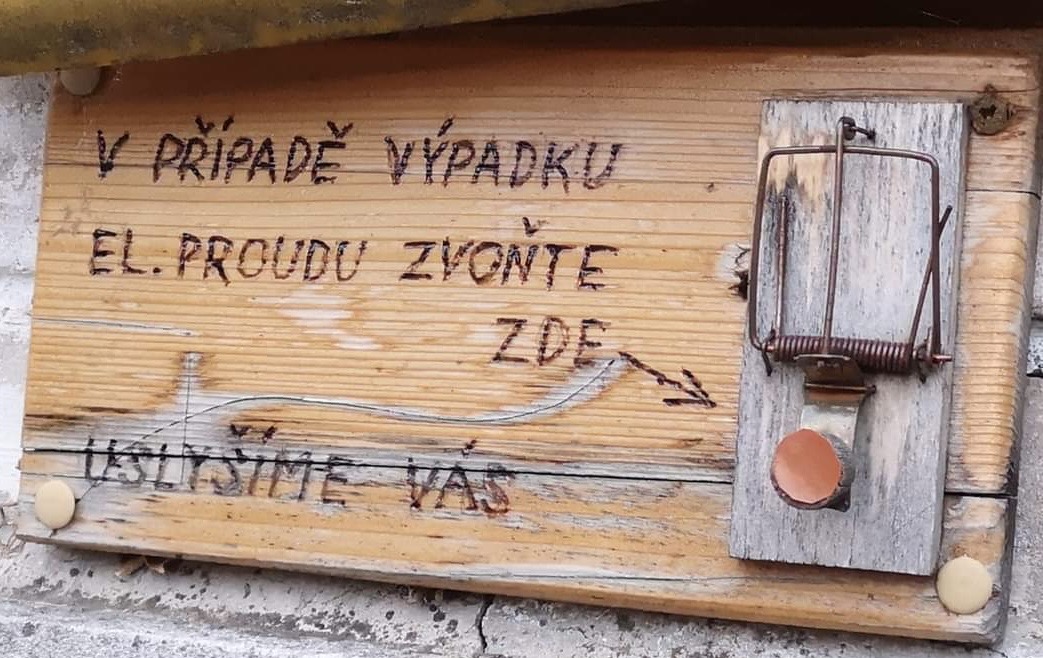 V PŘÍPADĚ VÝPADKU
EL. PROUDU ZVOŇTE
ZDE
USLYŠÍME VÁS